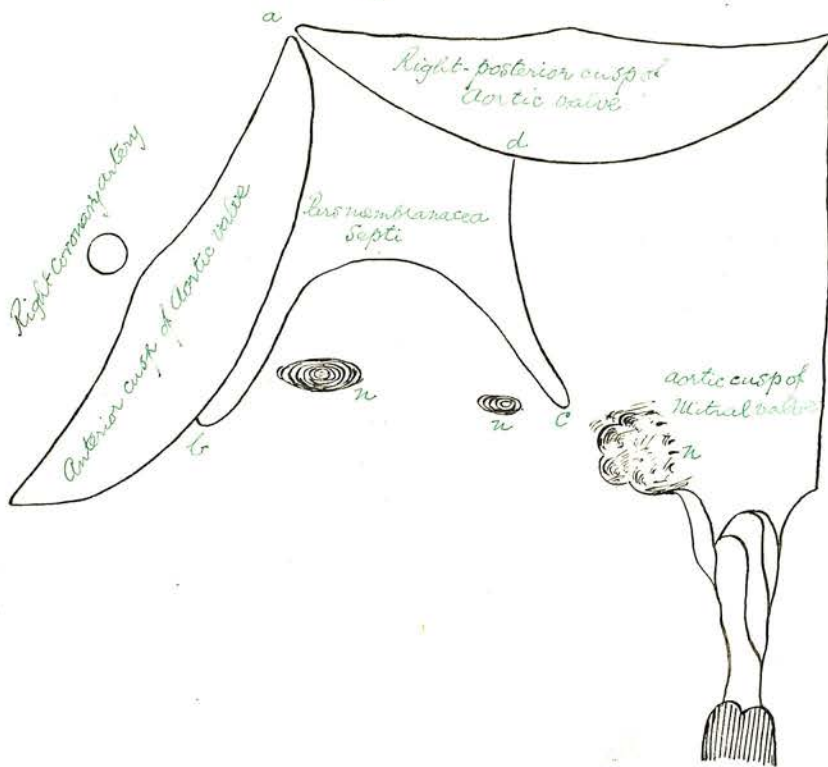 a
Right-posterior cusp of
Aortic valve
d
Right coronary artery
Anterior cusp of Aortic valve
Pars membranacea
Septi
n
n
b
c
aortic cusp of
Mitral valve
n